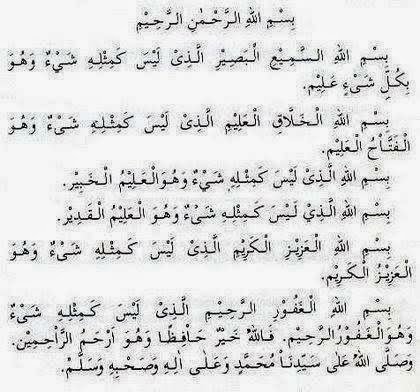 بِسْمِ اللهِ الرَّحْمٰنِ الرَّحِيْمِ
بِسْمِ اللهِ السَّمِيْعِ الْبَصِيْرِ الَّذِىْ لَيْسَ كَمِثْلِهِ شَىْءٌ وَهُوَ
بِكُلِّ شَىْءٍ عَلِيْم.
بِسْمِ اللهِ الْخَلَّاقِ الْعَلِيْمِ الَّذِىْ لَيْسَ كَمِثْلِهِ شَىْءٌ وَهُوَ
الْفَتَّاحُ الْعَلِيْم.
بِسْمِ اللهِ الَّذِىْ لَيْسَ كَمِثْلِهِ شَىْءٌ وَهُوَ الْعَلِيْمُ الْخَبِيْر.
بِسْمِ اللهِ الَّذِيْ لَيْسَ كَمِثْلِهِ شَىْءٌ وَهُوَ الْعَلِيْمُ الْقَدِيْر.
بِسْمِ اللهِ الْعَزِيْزِ الْكَرِيْمِ الَّذِىْ لَيْسَ كَمِثْلِهِ شَىْءٌ وَهُوَ
الْعَزِيْزُ الْكَرِيْم.
بِسْمِ اللهِ الْغَفُوْرِ الرَّحِيْمِ الَّذِىْ لَيْسَ كَمِثْلِهِ شَىْءٌ
وَهُوَ الْغَفُوْرُ الرَّحِيْم. فَاللهُ خَيْرٌ حَافِظًا وَهُوَ اَرْحَمُ الرَّاحِمِيْن.
وَصَلَّى اللهُ عَلَى سَيِّدِنَا مُحَمَّدٍ وَعَلَى اٰلِهِ وَصَحْبِهِ وَسَلَّمْ.